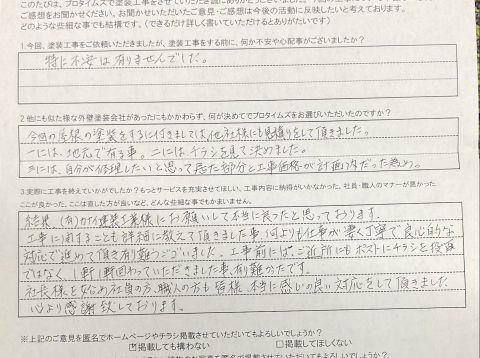 このたびは、プロタイムズで塗装工事をさせていただき誠にありがとうございました。
ご感想をお聞かせください。お聞かせいただいたご意見・ご感想は今後の活動に反映したいと考えております。
どのような些細な事でも結構です。(できるだけ詳しく書いていただけるとありがたいです)
1.今回、塗装工事をご依頼いただきましたが、塗装工事をする前に、何か不安や心配事がございましたか?
特に不安は有りませんでした。
2.他にも似た様な外壁塗装会社があったにもかかわらず、何が決めてでプロタイムズをお選びいただいたのですか?
今回の屋根の塗装をするに付きましては、他社様にも見積りをして頂きました。
一には、地元で有る事。二にはチラシを見て決めました。
三には、自分が修理したいと思って居た部分と工事価格が計画内だった為め。
3.実際に工事を終えていかがでしたか?もっとサービスを充実させてほしい、工事内容に納得がいかなかった、社員・職人のマナーが悪かった
ここが良かった、ここは直した方が良いなど、どんな些細な事でもかまいません。
結果、(有)
にお願いして本当に良ったと思っております。
工事に関することも詳細に教えて頂きました事、何よりも仕事が素く丁寧で良心的な
対応で進めて頂き有難うございました。工事前には、ご近所にもポストにチラシを投函
ではなく、1軒1軒回わっていただきました事有難かったです。
社長様を始め社員の方、職人の方も皆様、本当に感いの良い対応をして頂きました
心より感謝致しております。
※上記のご意見を匿名でホームページやチラシ掲載させていただいてもよろしいでしょうか?
☑掲載しても構わない □掲載してほしくない